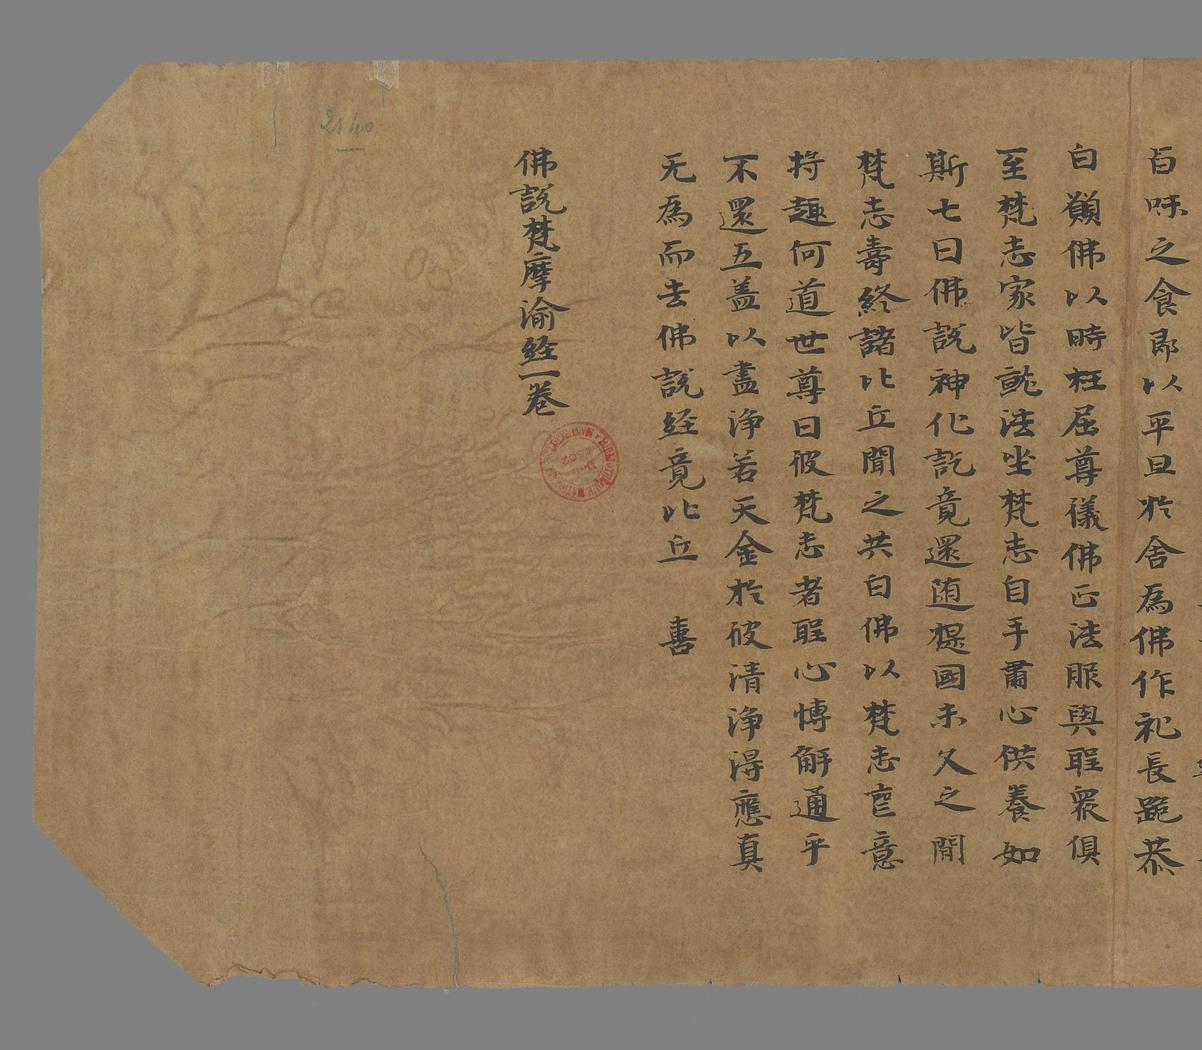 旨味之食即以平旦於舍為佛作礼長跪恭
白願佛以時枉屈尊儀佛正法服與聖眾俱
至梵志家皆就法坐梵志自手肅心供養如
斯七日佛說神化訖竟還随提國未久之間
梵志壽終諸比丘聞之共白佛以梵志意
持趣何道世尊曰彼梵志者聖心博解通乎
不還五盖以盡淨若天金於彼清淨得應真
无為而去佛說経竟比丘 喜
佛說梵摩渝経一卷